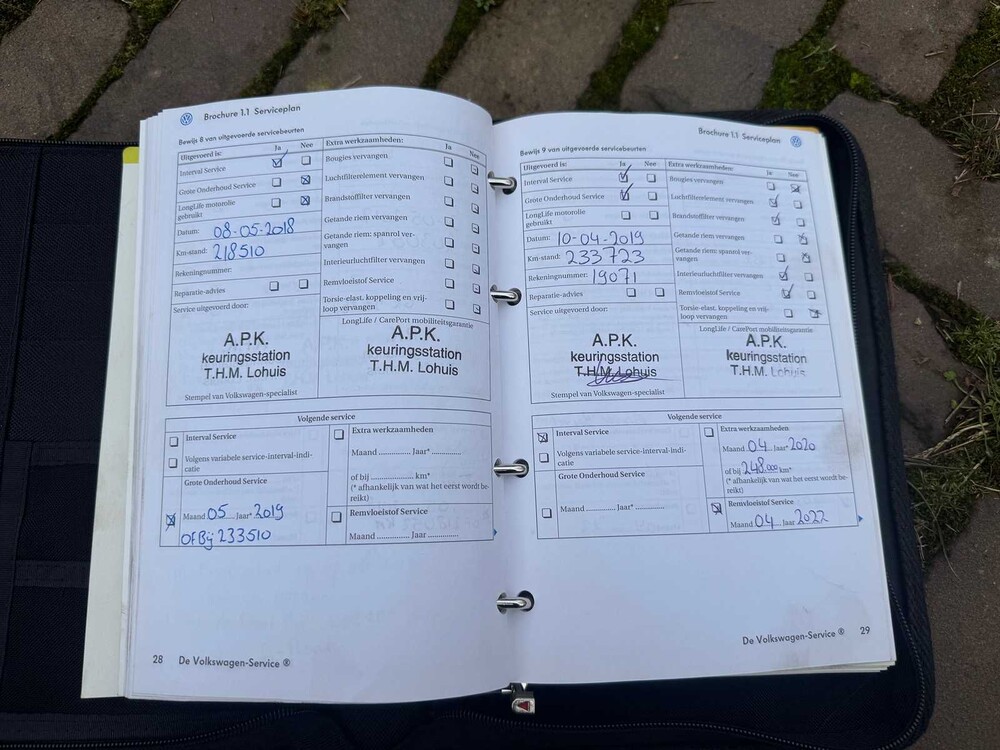 Brochure 1.1 Serviceplan
Bewijs 8 van uitgevoerde servicebeurten
Uitgevoerd is: Ja Nee
Interval Service
Grote Onderhoud Service
LongLife motorolie
gebruikt
Datum: 08-05-2018
Km-stand: 218510
Rekeningnummer:
Reparatie-advies
Service uitgevoerd door:
A.P.K.
keuringsstation
T.H.M. Lohuis
Stempel van Volkswagen-specialist
Extra werkzaamheden: Ja Nee
Bougies vervangen
Luchtfilterelement vervangen
Brandstoffilter vervangen
Getande riem vervangen
Getande riem: spanrol ver-
vangen
Interieurluchtfilter vervangen
Remvloeistof Service
Torsie-elast. koppeling en vrij-
loop vervangen
LongLife / CarePort mobiliteitsgarantie
A.P.K.
keuringsstation
T.H.M. Lohuis
Volgende service
Interval Service
Volgens variabele service-interval-indi-
catie
Grote Onderhoud Service
Maand 05 Jaar* 2019
OF Bij 233510
Extra werkzaamheden
Maand ............ Jaar* ............
of bij ............... km*
(* afhankelijk van wat het eerst wordt be-
reikt)
Remvloeistof Service
Maand ............ Jaar ............
28 De Volkswagen-Service ®
Brochure 1.1 Serviceplan
Bewijs 9 van uitgevoerde servicebeurten
Uitgevoerd is: Ja Nee
Interval Service
Grote Onderhoud Service
LongLife motorolie
gebruikt
Datum: 10-04-2019
Km-stand: 233723
Rekeningnummer: 19071
Reparatie-advies
Service uitgevoerd door:
A.P.K.
keuringsstation
T.H.M. Lohuis
Stempel van Volkswagen-specialist
Extra werkzaamheden: Ja Nee
Bougies vervangen
Luchtfilterelement vervangen
Brandstoffilter vervangen
Getande riem vervangen
Getande riem: spanrol ver-
vangen
Interieurluchtfilter vervangen
Remvloeistof Service
Torsie-elast. koppeling en vrij-
loop vervangen
LongLife / CarePort mobiliteitsgarantie
A.P.K.
keuringsstation
T.H.M. Lohuis
Volgende service
Interval Service
Volgens variabele service-interval-indi-
catie
Grote Onderhoud Service
Maand ............ Jaar* ............
Extra werkzaamheden
Maand 04 Jaar* 2020
of bij 248.000 km*
(* afhankelijk van wat het eerst wordt be-
reikt)
Remvloeistof Service
Maand 04 Jaar 2022
De Volkswagen-Service ® 29